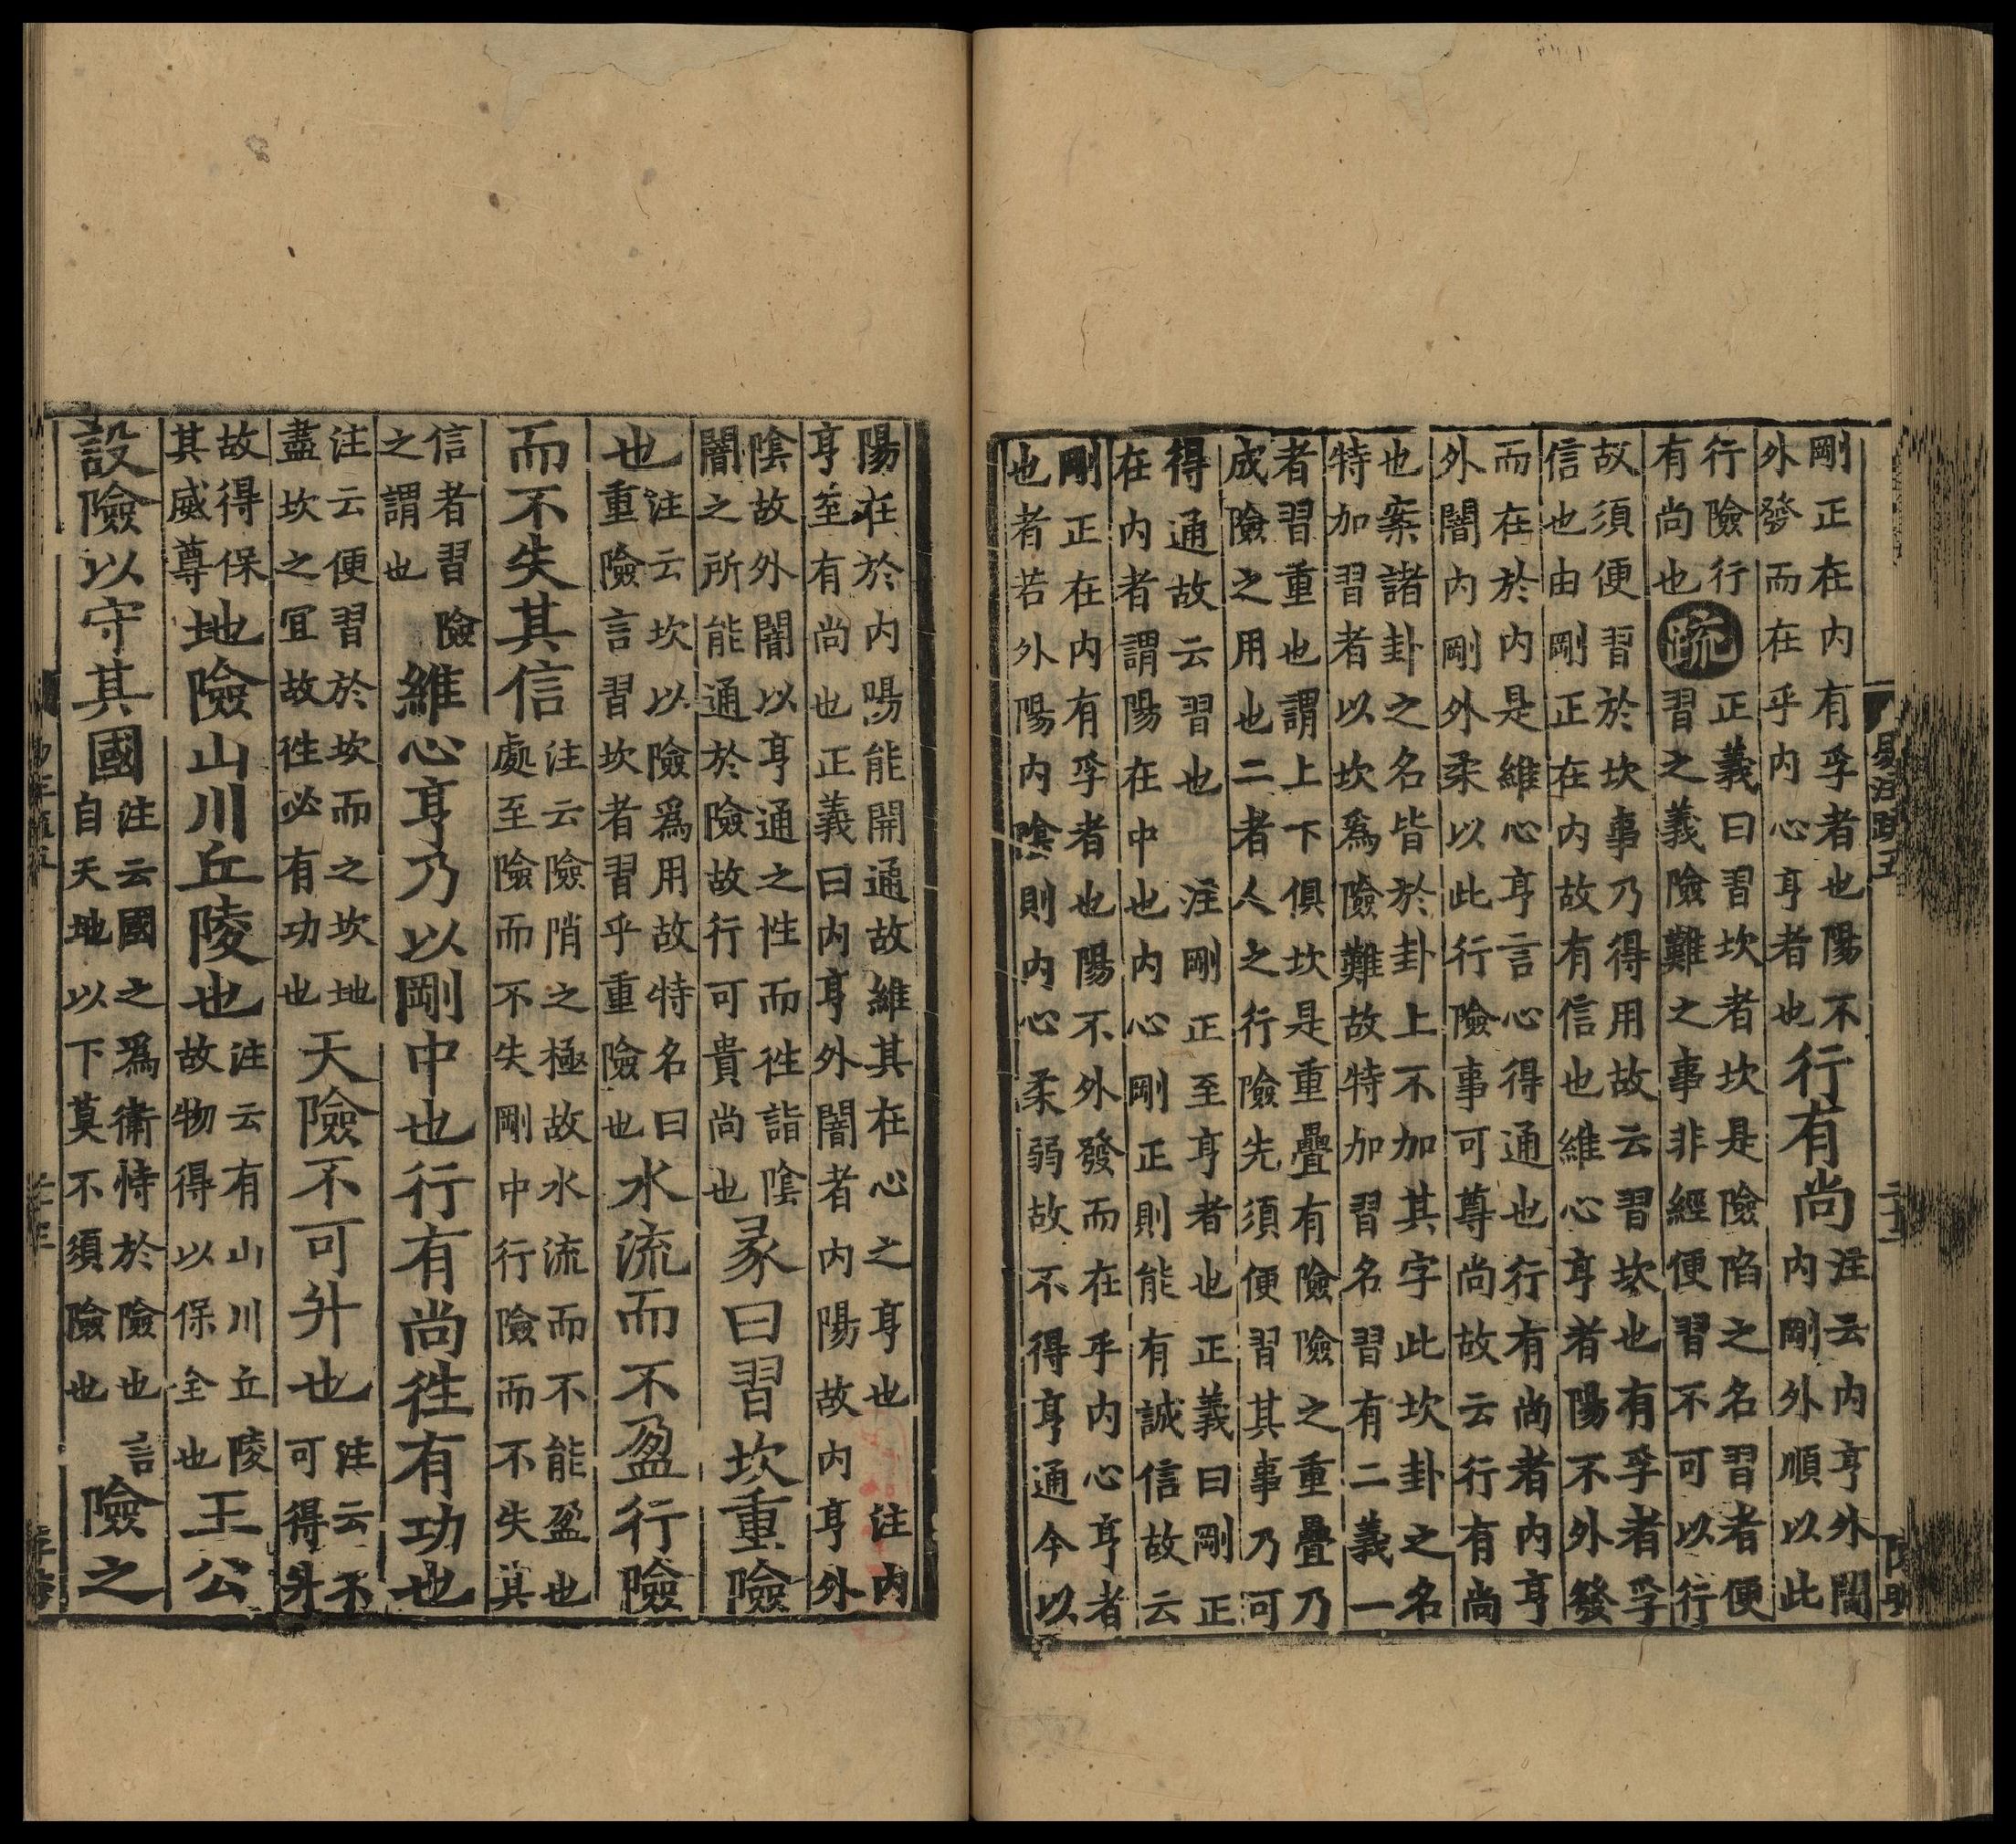 剛正在内有孚者也陽不
外發而在乎内心亨者也
行有尚
注云内亨外闇
内剛外順以此
行險行
有尚也
疏
正義曰習坎者坎是險陷之名習者便
習之義險難之事非經便習不可以行
故須便習於坎事乃得用故云習坎也有孚者孚
信也由剛正在内故有信也維心亨者陽不外發
而在於内是維心亨言心得通也行有尚者内亨
外闇内剛外柔以此行險事可尊尚故云行有尚
也案諸卦之名皆於卦上不加其字此坎卦之名
特加習者以坎爲險難故特加習名習有二義一
者習重也謂上下俱坎是重疊有險險之重疊乃
成險之用也二者人之行險先須便習其事乃可
得通故云習也 注剛正至亨者也正義曰剛正
在内者謂陽在中也内心剛正則能有誠信故云
剛正在内有孚者也陽不外發而在乎内心亨者
也者若外陽内陰則内心柔弱故不得亨通今以
易注疏五
二十五
陽在於内陽能開通故維其在心之亨也 注内
亨至有尚也正義曰内亨外闇者内陽故内亨外
陰故外闇以亨通之性而徃詣陰
闇之所能通於險故行可貴尚也
彖曰習坎重險
也
注云坎以險爲用故特名曰
重險言習坎者習乎重險也
水流而不盈行險
而不失其信
注云險陗之極故水流而不能盈也
處至險而不失剛中行險而不失其
信者習險
之謂也
維心亨乃以剛中也行有尚徃有功也
注云便習於坎而之坎地
盡坎之宜故徃必有功也
天險不可升也
注云不
可得升
故得保
其威尊
地險山川丘陵也
注云有山川丘陵
故物得以保全也
王公
設險以守其國
注云國之爲衛恃於險也言
自天地以下莫不須險也
險之